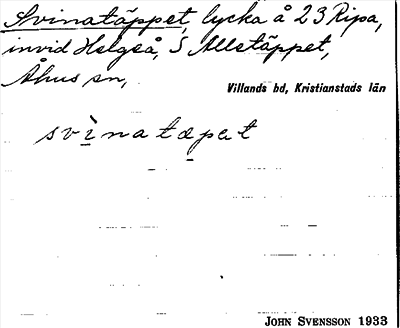 Svinatäppet, lycka å 23 Ripa,
invid Helgeå, S Alletäppet,
Åhus sn,
Villands hd, Kristianstads län
svìnatæpet
JOHN SVENSSON 1933